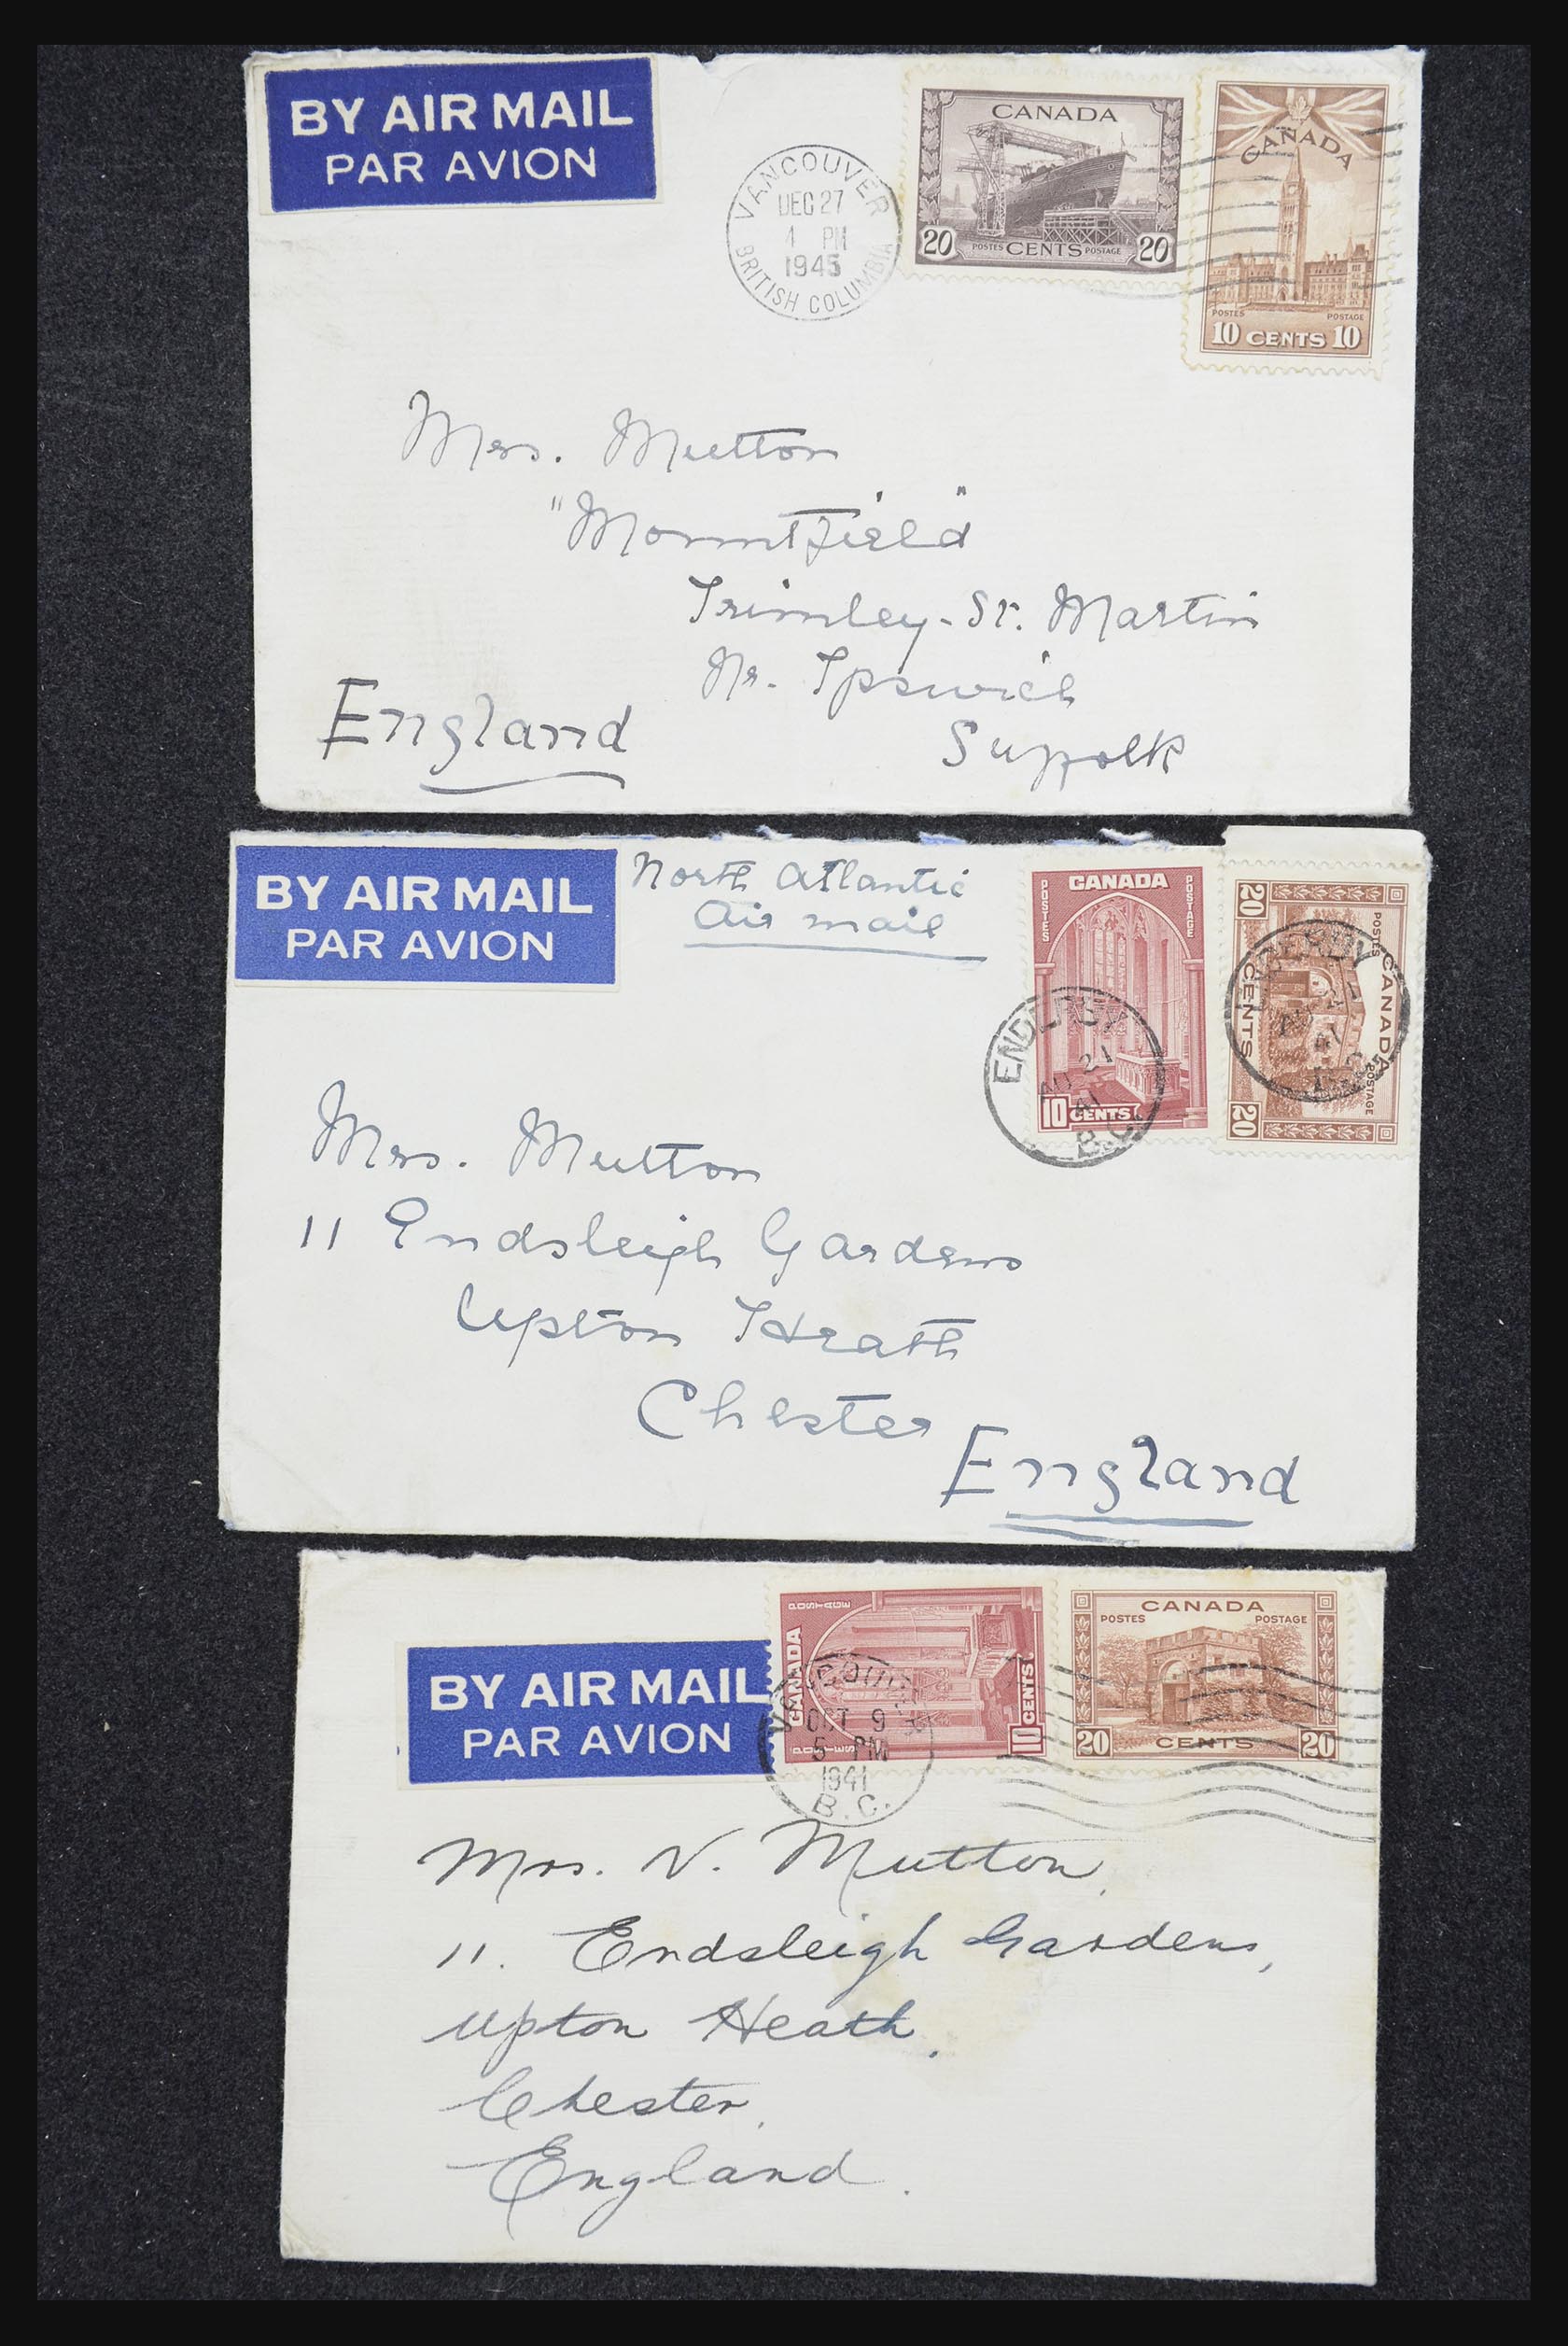 BY AIR MAIL
PAR AVION
VANCOUVER
DEC 27
4 PM
1945
BRITISH COLUMBIA
CANADA
20 POSTES CENTS POSTAGE 20
CANADA
POSTES POSTAGE
10 CENTS 10
Mrs. Mutton
"Mountfield"
Trimley-St. Martin
Nr. Ipswich
Suffolk
England
BY AIR MAIL
PAR AVION
North Atlantic
Air mail
CANADA
POSTES POSTAGE
10 CENTS
ENDERBY
AU 21
41
B.C.
CANADA
POSTES POSTAGE
20 CENTS 20
ENDERBY
AU 21
41
B.C.
Mrs. Mutton
11 Endsleigh Gardens
Upton Heath
Chester
England
BY AIR MAIL
PAR AVION
POSTES CANADA POSTAGE
10 CENTS
VANCOUVER
OCT 9
5 PM
1941
B.C.
CANADA
POSTES POSTAGE
20 CENTS 20
Mrs. V. Mutton,
11. Endsleigh Gardens,
Upton Heath,
Chester,
England.